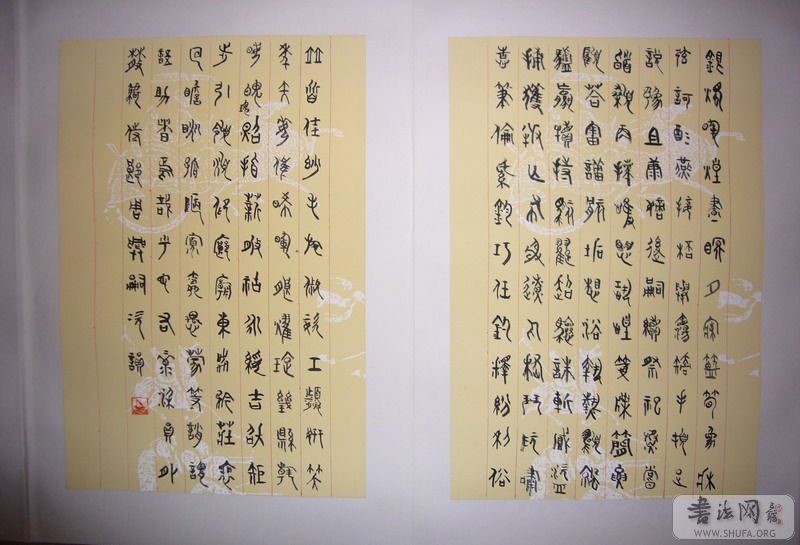 銀燭煒煌晝眠夕寐藍筍象床
弦歌酒讌接杯舉觴矯手頓足
悅豫且康嫡後嗣續祭祀蒸嘗
稽顙再拜悚懼恐惶箋牒簡要
顧答審詳骸垢想浴執熱願涼
驢騾犢特駭躍超驤誅斬賊盜
捕獲叛亡布射遼丸嵇琴阮嘯
恬筆倫紙鈞巧任釣釋紛利俗
並皆佳妙毛施淑姿工顰妍笑
年矢每催曦暉朗耀璇璣懸斡
晦魄環照指薪修祜永綏吉劭矩
步引領俯仰廊廟束帶矜莊徘
徊瞻眺孤陋寡聞愚蒙等誚謂
語助者焉哉乎也右員外
散騎侍郎周興嗣次韻
书法网
WWW.SHUFA.ORG